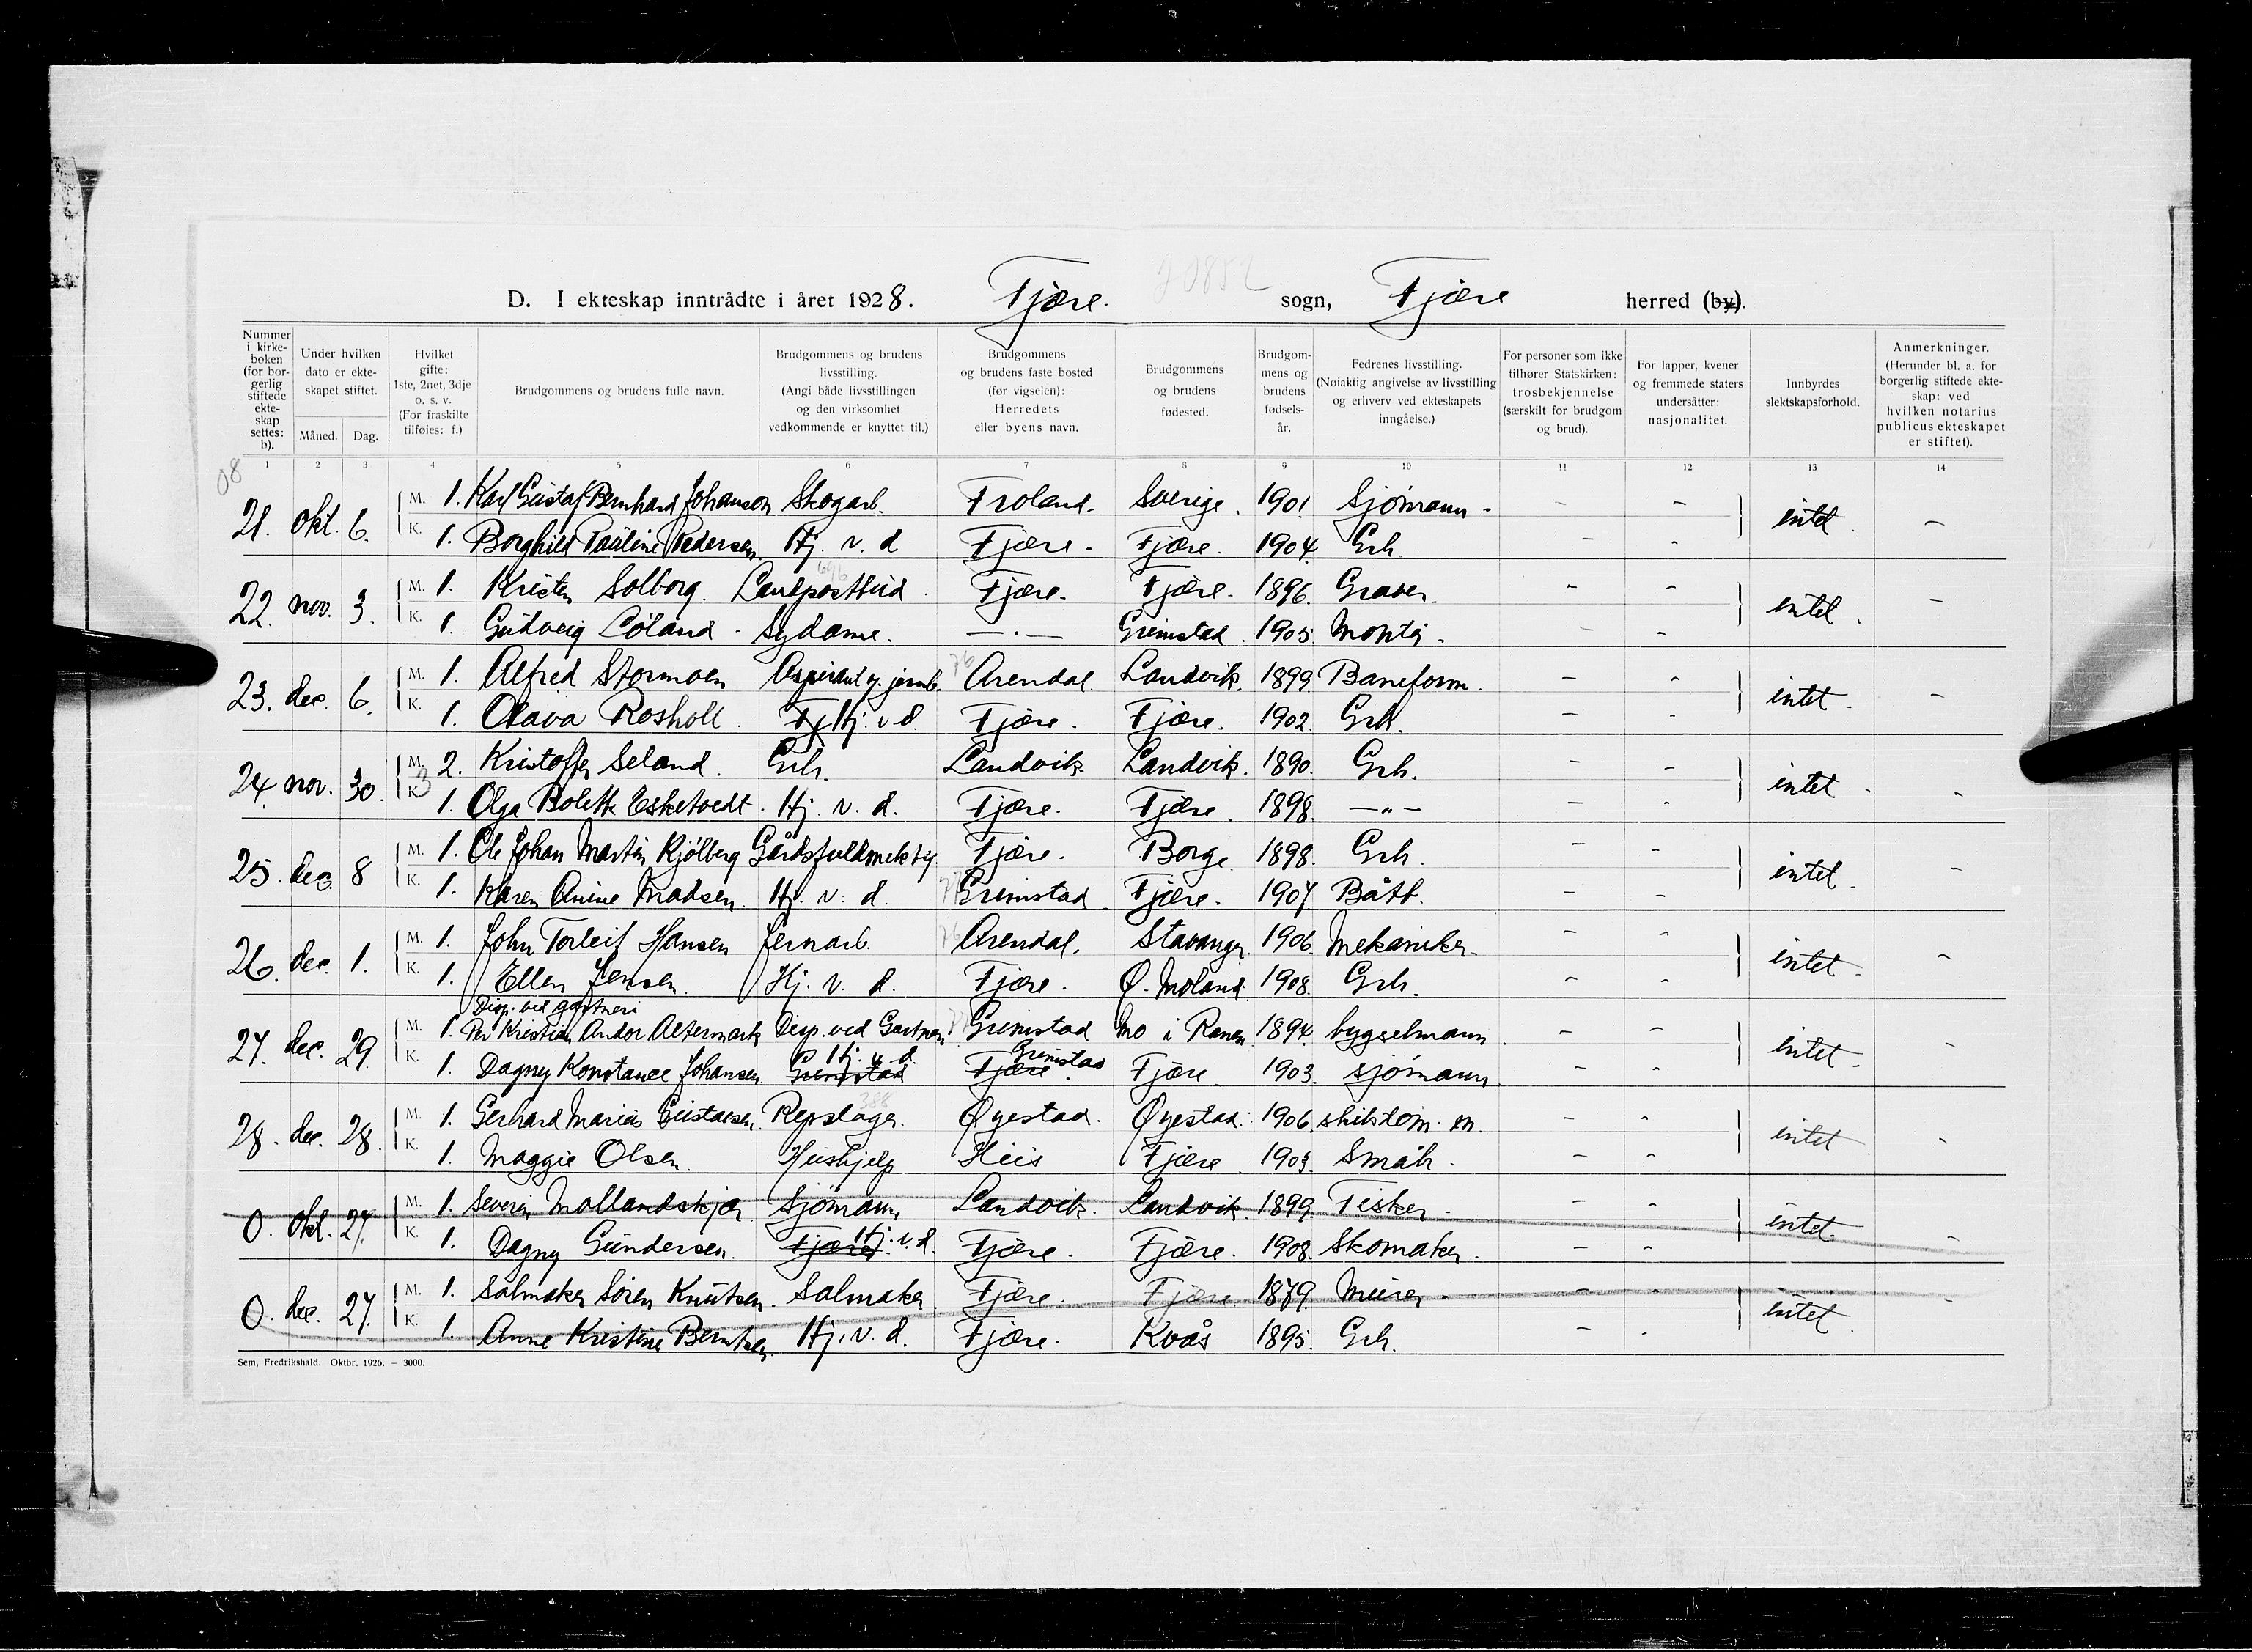 20852
D. I ekteskap inntrådte i året 1928. Fjære. sogn, Fjære herred (by).
Nummer i kirke-boken (for bor-gerlig stiftede ekte-skap settes: b). Under hvilken dato er ekte-skapet stiftet. Måned. Dag. Hvilket gifte: 1ste, 2net, 3dje o. s. v. (For fraskilte tilføies: f.) Brudgommens og brudens fulle navn. Brudgommens og brudens livsstilling. (Angi både livsstillingen og den virksomhet vedkommende er knyttet til.) Brudgommens og brudens faste bosted (før vigselen): Herredets eller byens navn. Brudgommens og brudens fødested. Brudgom-mens og brudens fødsels-år. Fedrenes livsstilling. (Nøiaktig angivelse av livsstilling og erhverv ved ekteskapets inngåelse.) For personer som ikke tilhører Statskirken: trosbekjennelse (særskilt for brudgom og brud). For lapper, kvener og fremmede staters undersåtter: nasjonalitet. Innbyrdes slektskapsforhold. Anmerkninger. (Herunder bl. a. for borgerlig stiftede ekte-skap: ved hvilken notarius publicus ekteskapet er stiftet).
1 2 3 4 5 6 7 8 9 10 11 12 13 14
08
21. okt. 6. M. 1. Karl Gustaf Bernhard Johanson Skogarb. Froland. Sverige. 1901 Sjømann - - - intet. -
K. 1. Borghild Pauline Pedersen Hj. v. d Fjære. Fjære. 1904. Grh. - -
696
22. nov. 3. M. 1. Kristen Solborg. Landpostbud. Fjære. Fjære. 1896. Graver. - - intet. -
K. 1. Gudveig Löland - Sydame. — . — Grimstad. 1905. Montør. - -
23. dec. 6. M. 1. Alfred Stormoen Aspirant v. jernb. 76 Arendal. Landvik. 1899. Baneform. - - intet. -
K. 1. Olava Rosholt. Fj Hj. v d. Fjære. Fjære. 1902. Grh. - -
24. nov. 30. M. 2. Kristoffer Seland. Grh. Landvik Landvik. 1890. Grh. - - intet. -
K. 3 1. Olga Bolette Esketvedt. Hj. v. d. Fjære. Fjære. 1898. — " — - -
25. dec. 8 M. 1. Ole Johan Martin Kjölberg Gårdsfuldmektig. Fjære. Borge 1898. Grh. - - intet. -
K. 1. Karen Anine Madsen. Hj. v. d. 77 Grimstad. Fjære. 1907 Båtb. - -
26. dec. 1. M. 1. John Torleif Hansen Jernarb. 76 Arendal. Stavanger. 1906. Mekaniker. - - intet. -
K. 1. Ellen Jensen. Hj. v. d. Fjære. Ø. Moland. 1908. Grh. - -
Disp. ved gartneri
27. dec. 29. M. 1. Per Kristian Andor Altermark Disp. ved Gartneri 77 Grimstad Mo i Ranen. 1894. bygselmann - - intet. -
K. 1. Dagny Konstance Johansen Grimstad Hj. v. d. Fjære Grimstad Fjære. 1903. sjømann - -
388
28. dec. 28. M. 1. Gerhard Marius Gustavsen. Repslager. Øyestad. Øyestad. 1906. skibstöm. m. - - intet -
K. 1. Maggie Olsen. Hushjelp Hiis Fjære. 1903. Småbr. - -
0. okt. 27. M. 1. Severin Mollandskjær. Sjømann Landvik. Landvik. 1899. Fisker. - - intet. -
K. 1. Dagny Gundersen. Fjære Hj. v. d. Fjære. Fjære. 1908. Skomaker. - -
0. dec. 27. M. 1. Salmaker Sören Knutsen. Salmaker. Fjære. Fjære. 1879. Murer - - - intet. -
K. 1. Anne Kristine Berntsen. Hj. v. d. Fjære. Kvås 1895. Grh. - -
Sem, Fredrikshald. Oktbr. 1926. – 3000.